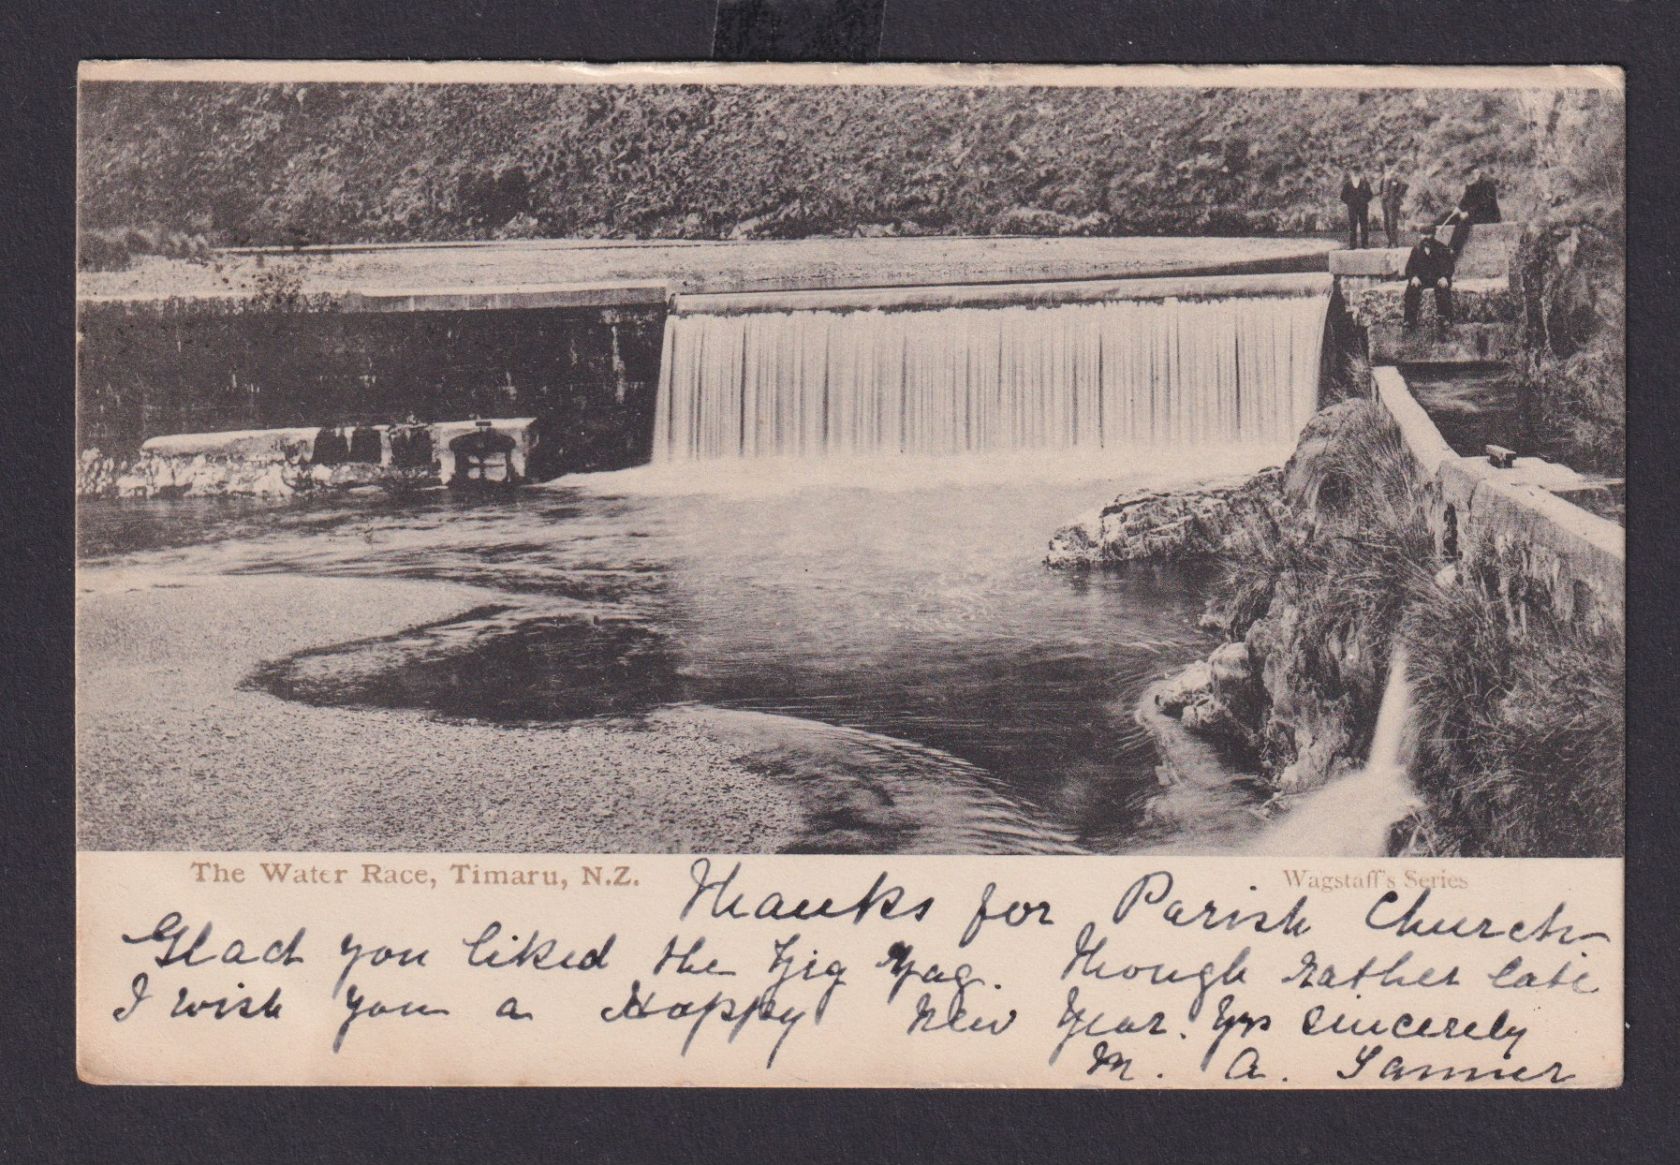 The Water Race, Timaru, N.Z.
Wagstaff's Series
Thanks for Parish Church
Glad you liked the Zig Zag. Though rather late
I wish you a Happy New Year. Yrs sincerely
M. A.